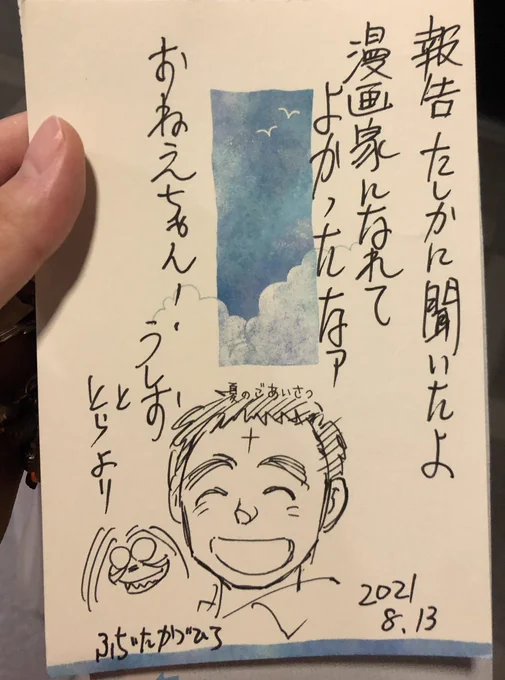 報告 たしかに聞いたよ
漫画家になれて
よかったなァ
おねえちゃん!
うしお
と
とらより
夏のごあいさつ
ふじたかづひろ
2021
8.13